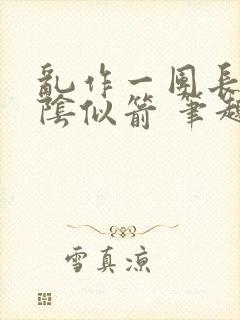 亂作一團長
陰似箭 筆
雪真涼